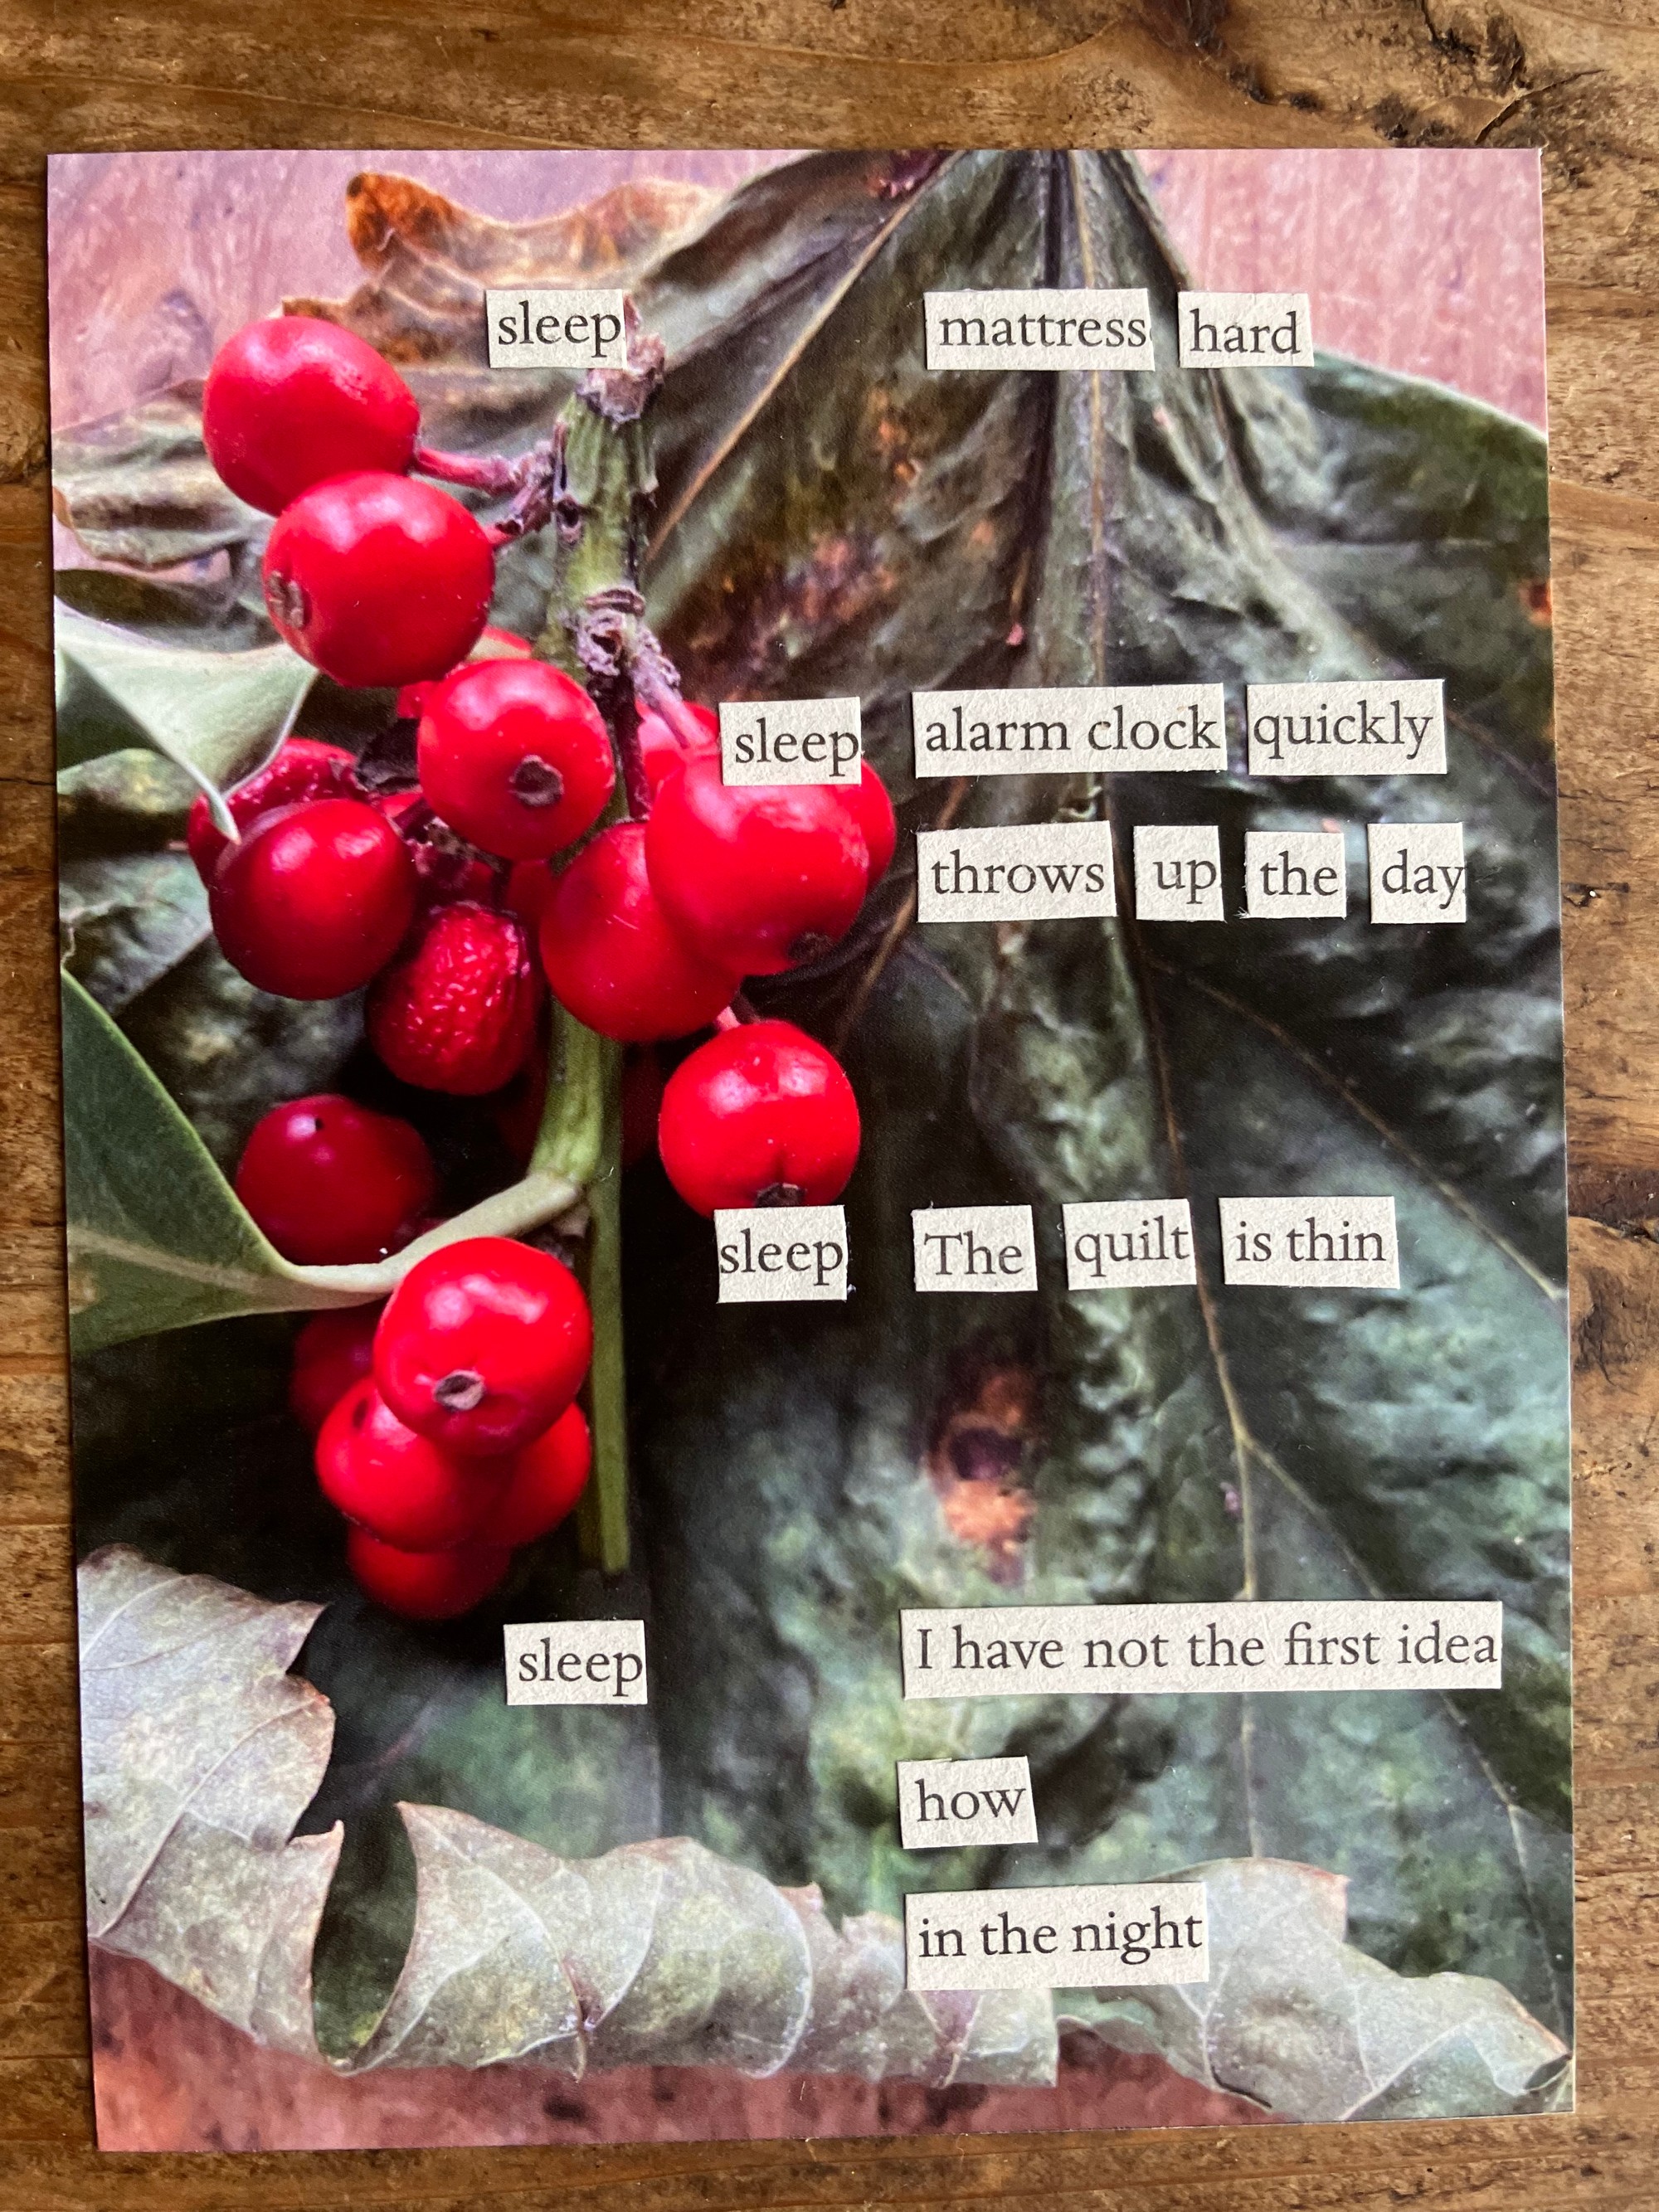 sleep mattress hard
sleep alarm clock quickly
throws up the day
sleep The quilt is thin
sleep I have not the first idea
how
in the night